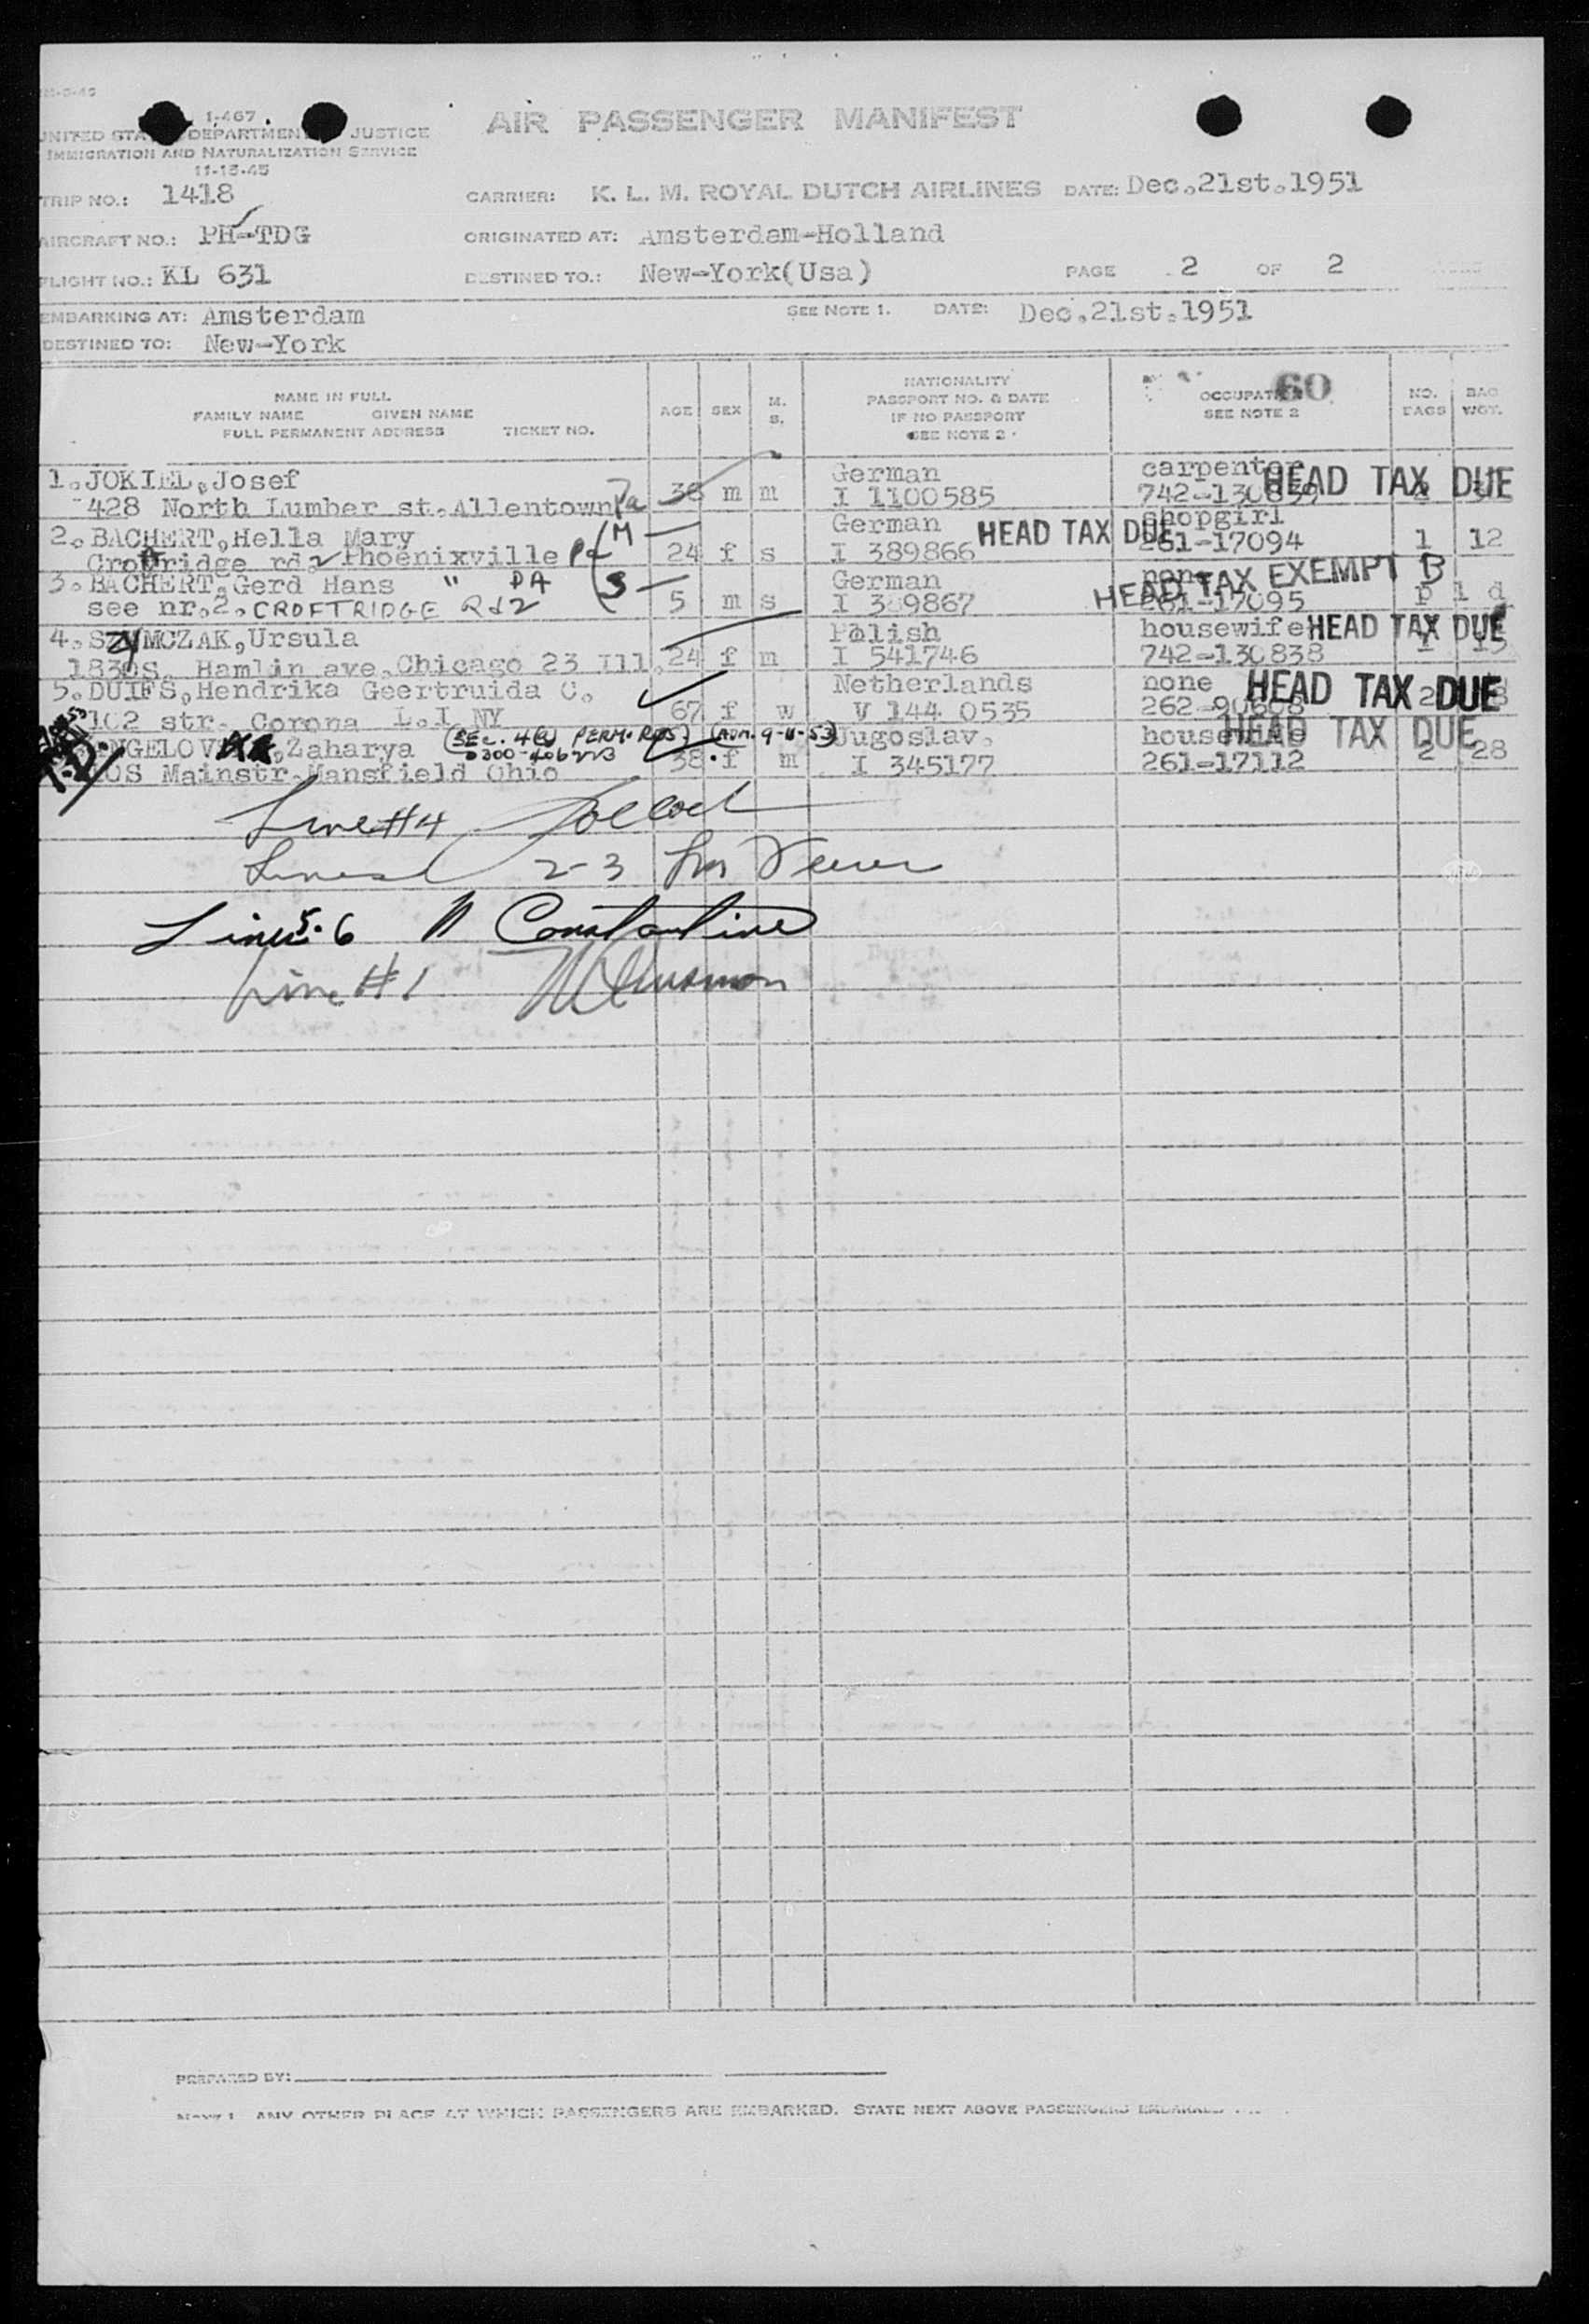 1-467
UNITED STA DEPARTMEN JUSTICE
IMMIGRATION AND NATURALIZATION SERVICE
11-15-45
AIR PASSENGER MANIFEST
TRIP NO.: 1418 CARRIER: K. L. M. ROYAL DUTCH AIRLINES DATE: Dec.21st.1951
AIRCRAFT NO.: PH-TDG ORIGINATED AT: Amsterdam-Holland
FLIGHT NO.: KL 631 DESTINED TO.: New-York(Usa) PAGE 2 OF 2
EMBARKING AT: Amsterdam SEE NOTE 1. DATE: Dec.21st.1951
DESTINED TO: New-York
NAME IN FULL
FAMILY NAME GIVEN NAME
FULL PERMANENT ADDRESS TICKET NO.
AGE SEX M. S.
NATIONALITY
PASSPORT NO. & DATE
IF NO PASSPORT
SEE NOTE 2
60
OCCUPATION
SEE NOTE 2
NO. BAGS
BAG WGT.
1. JOKIEL, Josef German carpenter HEAD TAX DUE
428 North Lumber st. Allentown Pa 38 m m I 1100585 742-130839
2. BACHERT, Hella Mary (M German HEAD TAX DUE shopgirl
ridge rd 2 Phoenixville Pa 24 f s I 389866 261-17094 1 12
3. BACHERT, Gerd Hans " PA (S German none HEAD TAX EXEMPT B
see nr.2. CROFTRIDGE Rd 2 5 m s I 389867 261-17095 p l d
4. SZYMCZAK, Ursula Polish housewife HEAD TAX DUE
1830S. Hamlin ave. Chicago 23 Ill. 24 f m I 541746 742-130838 1 15
5. DUIFS, Hendrika Geertruida C. Netherlands none HEAD TAX DUE
102 str. Corona L.I NY 67 f w V 144 0535 262-90608 2
NGELOV, Zaharya (SEC. 4(B) PERM. RES) (ADM. 9-11-53) Jugoslav. housewife HEAD TAX DUE
0300-406223
OS Mainstr. Mansfield Ohio 38 f m I 345177 261-17112 2 28
Line #4
Lines 2-3
Lines 5-6 N Constantine
Line #1
PREPARED BY:
NOTE 1. ANY OTHER PLACE AT WHICH PASSENGERS ARE EMBARKED. STATE NEXT ABOVE PASSENGERS EMBARKED